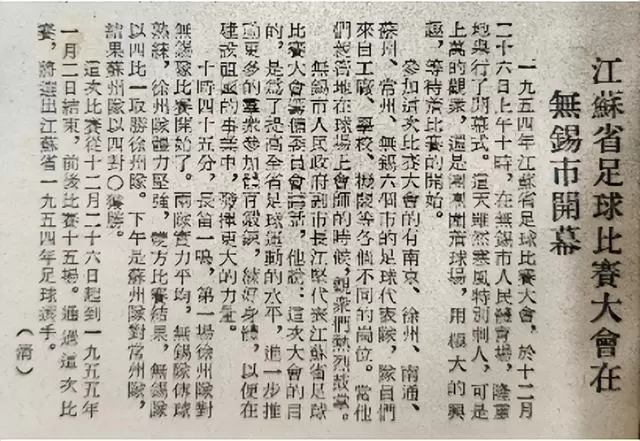 江蘇省足球比賽大會在
無錫市開幕
一九五四年江蘇省足球比賽大會，於十二月
二十六日上午十時，在無錫市人民體育場，隆重
地舉行了開幕式。這天雖然寒風特別刺人，可是
上萬的觀衆，還是團團圍着球場，用極大的興
趣，等待着比賽的開始。
參加這次比賽大會的有南京、徐州、南通、
蘇州、常州、無錫六個市的足球代表隊，隊員們
來自工廠、學校、機關等各個不同的崗位。當他
們披着地在球場上會師的時候，觀衆們熱烈鼓掌。
無錫市人民政府副市長江堅代表江蘇省足球
比賽大會籌備委員會講話，他說：這次大會的目
的，是爲了提高全省足球運動的水平，進一步推
動更多的羣衆參加體育鍛鍊，練好身體，以便在
建設祖國的事業中，發揮更大的力量。
十時四十五分，長笛一鳴，第一場徐州隊對
無錫隊比賽開始了。兩隊實力平均，無錫隊傳球
熟練，徐州隊體力堅強，雙方比賽結果，無錫隊
以四比一取勝徐州隊。下午是蘇州隊對常州隊，
結果蘇州隊以四對〇獲勝。
這次比賽從十二月二十六日起到一九五五年
一月二日結束，前後比賽十五場。通過這次比
賽，將選出江蘇省一九五四年足球選手。
（清）